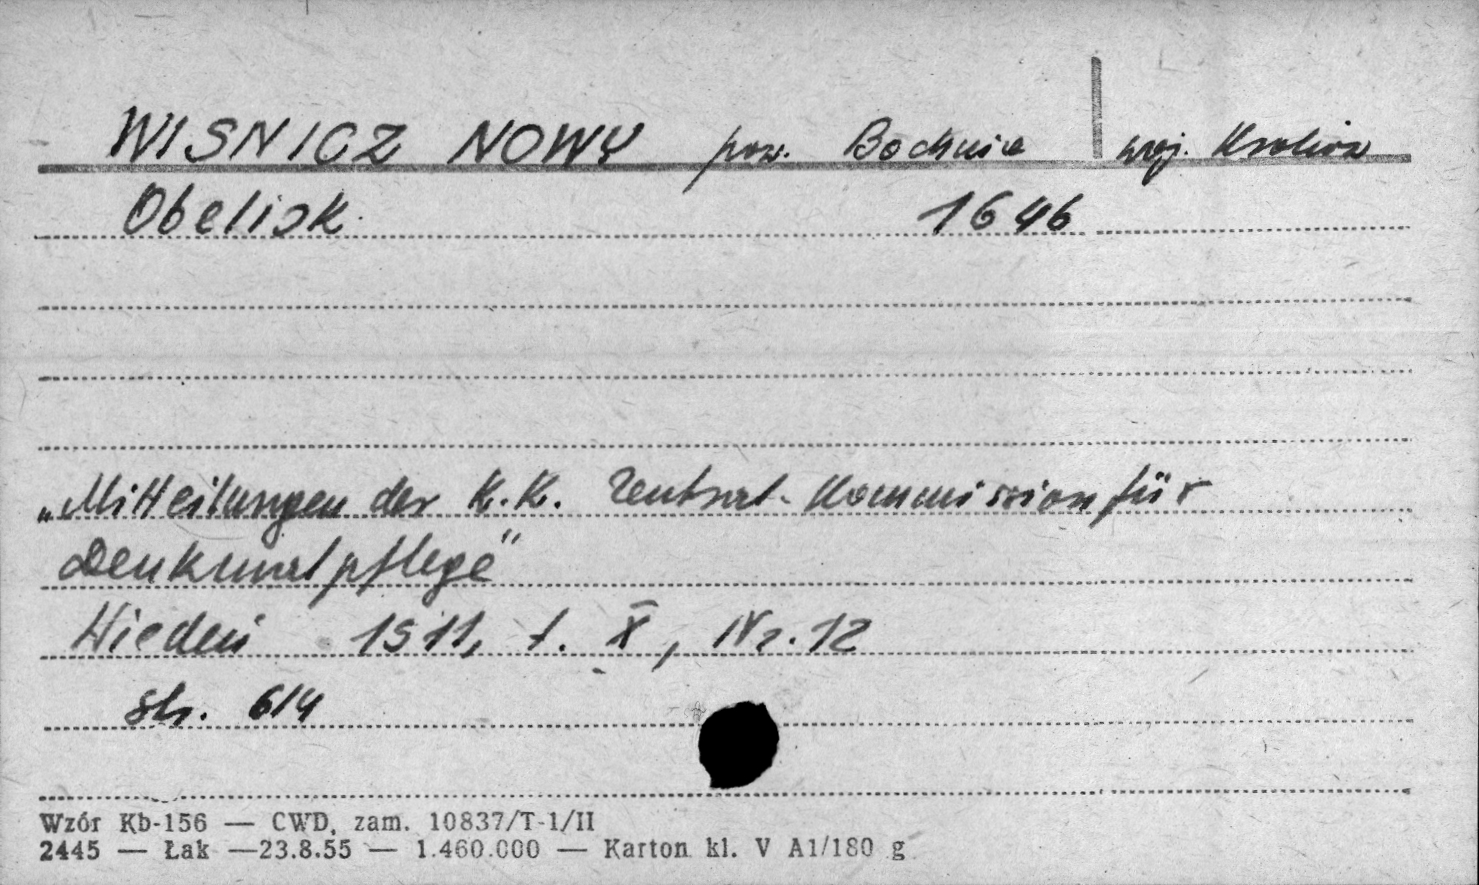 WISNICZ NOWY pow. Bochnia woj. Kraków
Obelisk 1646
„Mitteilungen der K.K. Zentral-Kommission für
Denkmalpflege"
Wiedeń 1911, t. X, Nr. 12
str. 614
Wzór Kb-156 — CWD, zam. 10837/T-1/II
2445 — Łak —23.8.55 — 1.460.000 — Karton kl. V A1/180 g